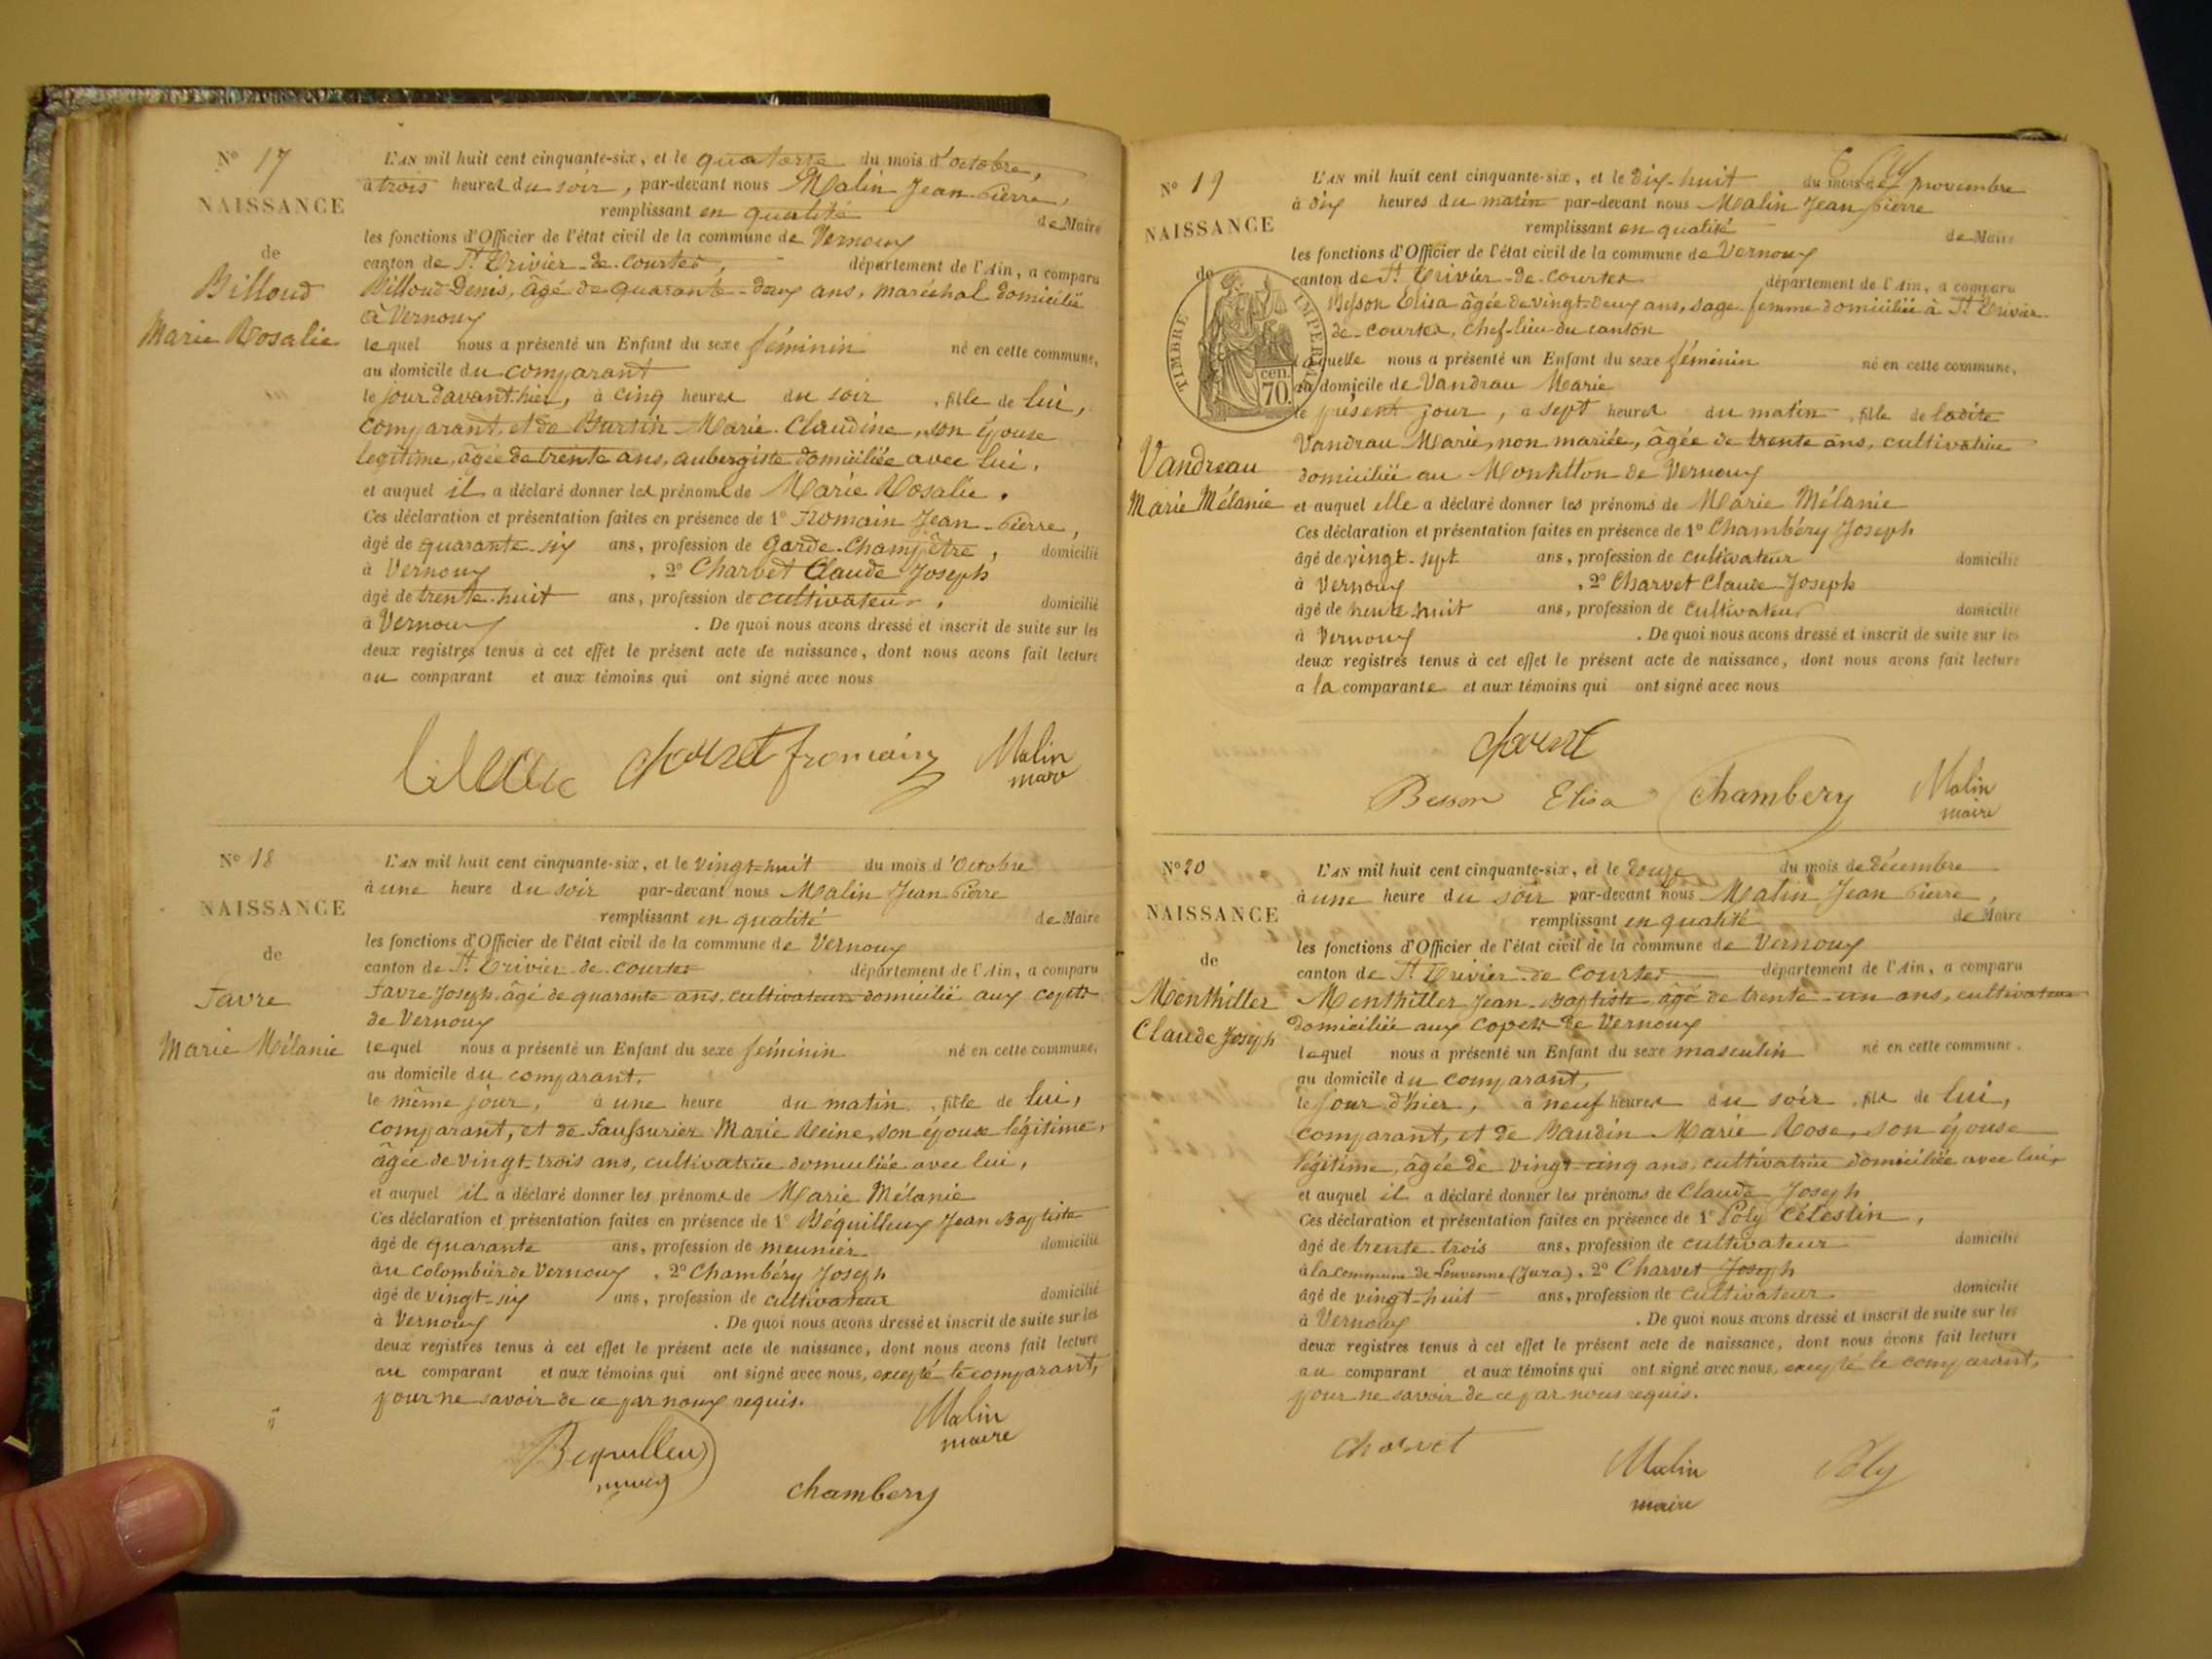 N° 17
NAISSANCE
de
Billoud
Marie Rosalie
L'AN mil huit cent cinquante-six, et le quatorze du mois d'octobre,
à trois heures du soir, par-devant nous Malin Jean-Pierre,
remplissant en qualité de Maire
les fonctions d'Officier de l'état civil de la commune de Vernoux
canton de St. Trivier-de-Courtes, département de l'Ain, a comparu
Billoud Denis, âgé de quarante-deux ans, maréchal domicilié
à Vernoux
lequel nous a présenté un Enfant du sexe féminin né en cette commune,
au domicile du comparant
le jour d'avant hier, à cinq heures du soir, fille de lui,
comparant, et de Burtin Marie-Claudine, son épouse
légitime, âgée de trente ans, aubergiste domiciliée avec lui,
et auquel il a déclaré donner les prénoms de Marie Rosalie.
Ces déclaration et présentation faites en présence de 1° Fromain Jean-Pierre,
âgé de quarante-six ans, profession de Garde-Champêtre, domicilié
à Vernoux, 2° Charvet Claude Joseph
âgé de trente-huit ans, profession de cultivateur, domicilié
à Vernoux. De quoi nous avons dressé et inscrit de suite sur les
deux registres tenus à cet effet le présent acte de naissance, dont nous avons fait lecture
au comparant et aux témoins qui ont signé avec nous
charvet fromain Malin
maire
N° 18
NAISSANCE
de
Favre
Marie Mélanie
L'AN mil huit cent cinquante-six, et le vingt-huit du mois d'Octobre
à une heure du soir par-devant nous Malin Jean Pierre
remplissant en qualité de Maire
les fonctions d'Officier de l'état civil de la commune de Vernoux
canton de St. Trivier-de-Courtes département de l'Ain, a comparu
Favre Joseph, âgé de quarante ans, cultivateur domicilié aux copets
de Vernoux
lequel nous a présenté un Enfant du sexe féminin né en cette commune,
au domicile du comparant,
le même jour, à une heure du matin, fille de lui,
comparant, et de Saussurier Marie Reine, son épouse légitime,
âgée de vingt-trois ans, cultivatrice domiciliée avec lui,
et auquel il a déclaré donner les prénoms de Marie Mélanie
Ces déclaration et présentation faites en présence de 1° Béquilleux Jean Baptiste
âgé de quarante ans, profession de meunier domicilié
au Colombier de Vernoux, 2° Chambéry Joseph
âgé de vingt-six ans, profession de cultivateur domicilié
à Vernoux. De quoi nous avons dressé et inscrit de suite sur les
deux registres tenus à cet effet le présent acte de naissance, dont nous avons fait lecture
au comparant et aux témoins qui ont signé avec nous, excepté le comparant,
pour ne savoir de ce par nous requis.
Malin
maire
Bequilleux
chambery
N° 19
NAISSANCE
de
TIMBRE IMPERIAL
70. cen.
Vandreau
Marie Mélanie
L'AN mil huit cent cinquante-six, et le dix-huit du mois de novembre
à dix heures du matin par-devant nous Malin Jean Pierre
remplissant en qualité de Maire
les fonctions d'Officier de l'état civil de la commune de Vernoux
canton de St. Trivier-de-Courtes département de l'Ain, a comparu
Besson Elisa âgée de vingt-deux ans, sage-femme domiciliée à St. Trivier-
de-Courtes, chef-lieu du canton
laquelle nous a présenté un Enfant du sexe féminin né en cette commune,
au domicile de Vandrau Marie
le présent jour, à sept heures du matin, fille de ladite
Vandrau Marie, non mariée, âgée de trente ans, cultivatrice
domiciliée au de Vernoux
et auquel elle a déclaré donner les prénoms de Marie Mélanie
Ces déclaration et présentation faites en présence de 1° Chambéry Joseph
âgé de vingt-sept ans, profession de cultivateur domicilié
à Vernoux, 2° Charvet Claude Joseph
âgé de trente-huit ans, profession de cultivateur domicilié
à Vernoux. De quoi nous avons dressé et inscrit de suite sur les
deux registres tenus à cet effet le présent acte de naissance, dont nous avons fait lecture
a la comparante et aux témoins qui ont signé avec nous
charvet
Besson Elisa Chambery Malin
maire
N° 20
NAISSANCE
de
Menthiller
Claude Joseph
L'AN mil huit cent cinquante-six, et le douze du mois de décembre
à une heure du soir par-devant nous Malin Jean Pierre,
remplissant en qualité de Maire
les fonctions d'Officier de l'état civil de la commune de Vernoux
canton de St. Trivier-de-Courtes département de l'Ain, a comparu
Menthiller Jean-Baptiste âgé de trente-un ans, cultivateur
domiciliée aux copets de Vernoux
lequel nous a présenté un Enfant du sexe masculin né en cette commune,
au domicile du comparant,
le jour d'hier, à neuf heures du soir, fils de lui,
comparant, et de Baudin Marie Rose, son épouse
légitime, âgée de vingt-cinq ans, cultivatrice domiciliée avec lui,
et auquel il a déclaré donner les prénoms de Claude Joseph
Ces déclaration et présentation faites en présence de 1° Poly Célestin,
âgé de trente-trois ans, profession de cultivateur domicilié
à la commune de Louvenne (Jura), 2° Charvet Joseph
âgé de vingt-huit ans, profession de cultivateur domicilié
à Vernoux. De quoi nous avons dressé et inscrit de suite sur les
deux registres tenus à cet effet le présent acte de naissance, dont nous avons fait lecture
au comparant et aux témoins qui ont signé avec nous, excepté le comparant,
pour ne savoir de ce par nous requis.
Charvet Malin Poly
maire